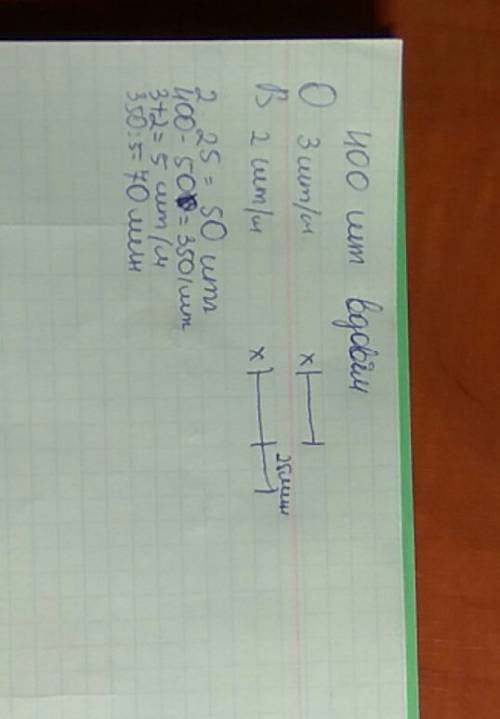 400 шт вдвоём
О 3 шт/м x
В 2 шт/м x 25 мин
2 25 = 50 шт
400 - 50 = 350 шт
3+2= 5 шт/м
350:5= 70 мин